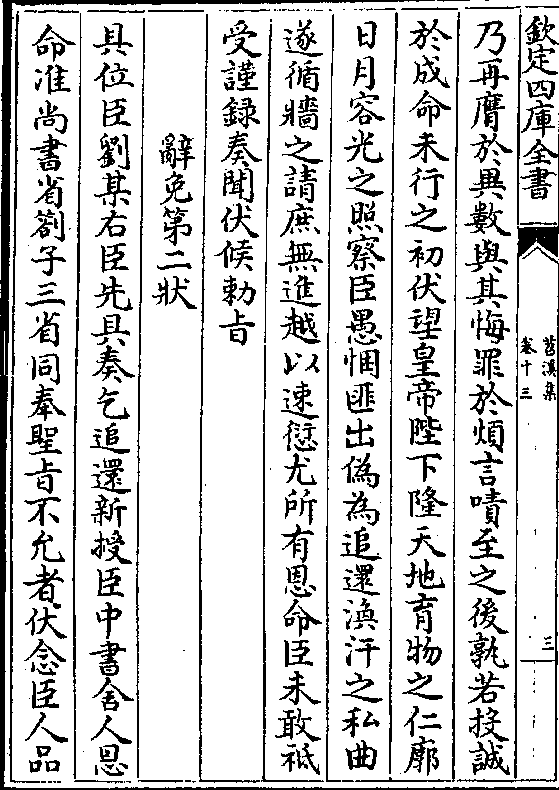 欽定四庫全書
苕溪集
卷十三
三
乃再膺於異數與其悔罪於煩言嘖至之後孰若投誠
於成命未行之初伏望皇帝陛下隆天地育物之仁廓
日月容光之照察臣愚悃匪出偽為追還渙汗之私曲
遂循牆之請庶無進越以速愆尤所有恩命臣未敢祗
受謹録奏聞伏候勅㫖
辭免第二狀
具位臣劉某右臣先具奏乞追還新授臣中書舍人恩
命准尚書省劄子三省同奉聖㫖不允者伏念臣人品